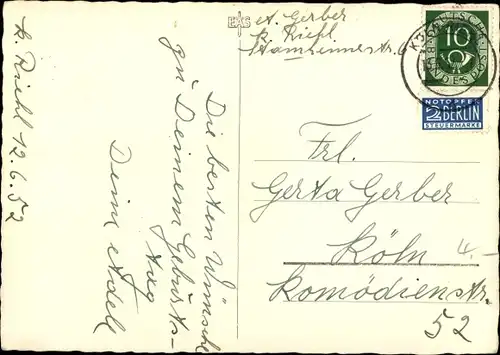 K. Riehl 12.6.52
Die besten Wünsche
zu Deinem Geburts-
tag
Deine Adele
EKS
A. Gerber
K. Riehl
Stammheimerstr. 6
DEUTSCHE
10
BUNDESPOST
NOTOPFER
2 BERLIN
STEUERMARKE
Frl.
Gerta Gerber
Köln
Komödienstr.
52
4.-